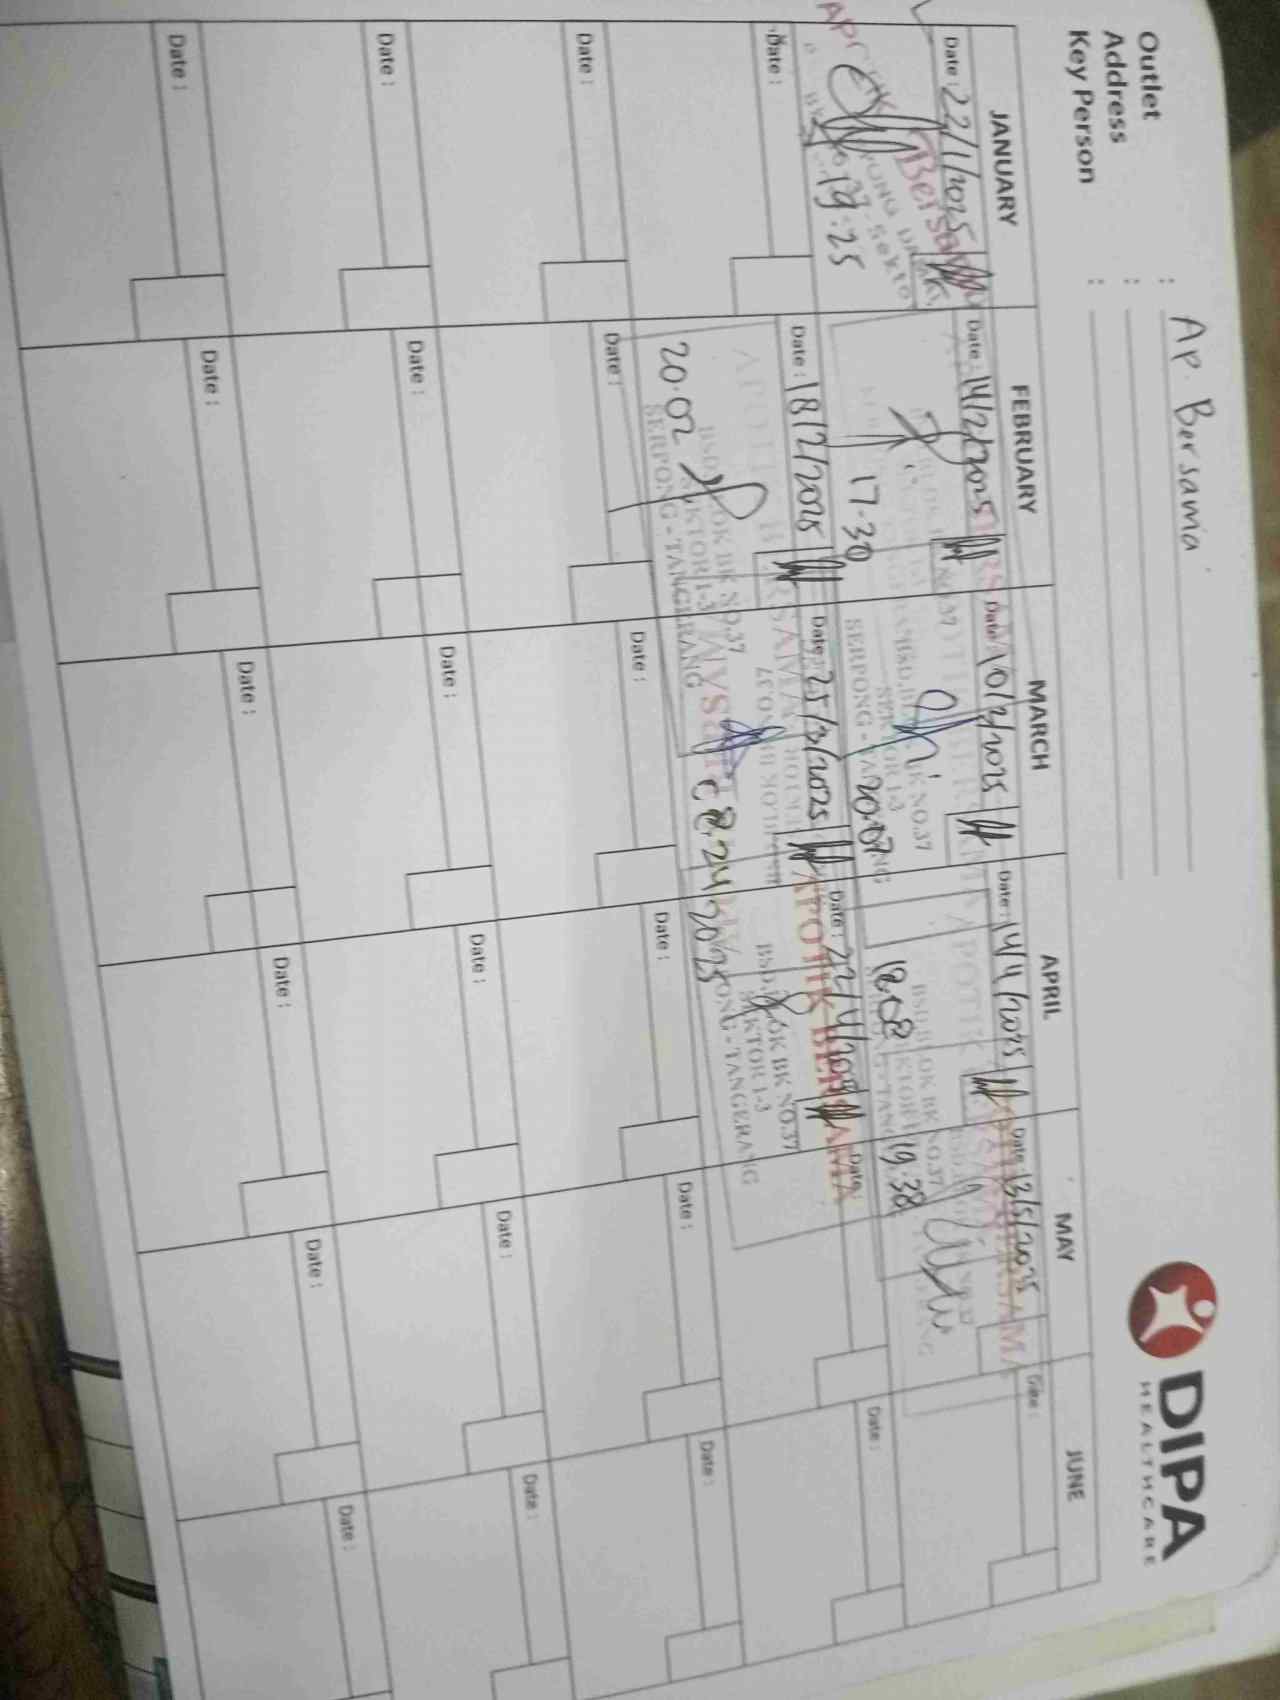 Outlet : Ap. Bersama
Address :
Key Person :
DIPA
HEALTHCARE
JANUARY FEBRUARY MARCH APRIL MAY JUNE
Date : 22/1/2025 Date : 14/2/2025 Date : 10/3/2025 Date : 14/4/2025 Date : 13/5/2025 Date :
Bersama
19:25 17-30 20:07 18:08 19:38
BSD, BLOK BK NO.37
SEKTOR 1-3
SERPONG - TANGERANG
Date : Date : 18/2/2025 Date : 25/3/2025 Date : 22/4/2025 Date : Date :
20.02 20:25
APOTIK BERSAMA
BSD, BLOK BK NO.37
SEKTOR 1-3
SERPONG - TANGERANG
Date : Date : Date : Date : Date : Date :
Date : Date : Date : Date : Date : Date :
Date : Date : Date : Date : Date : Date :